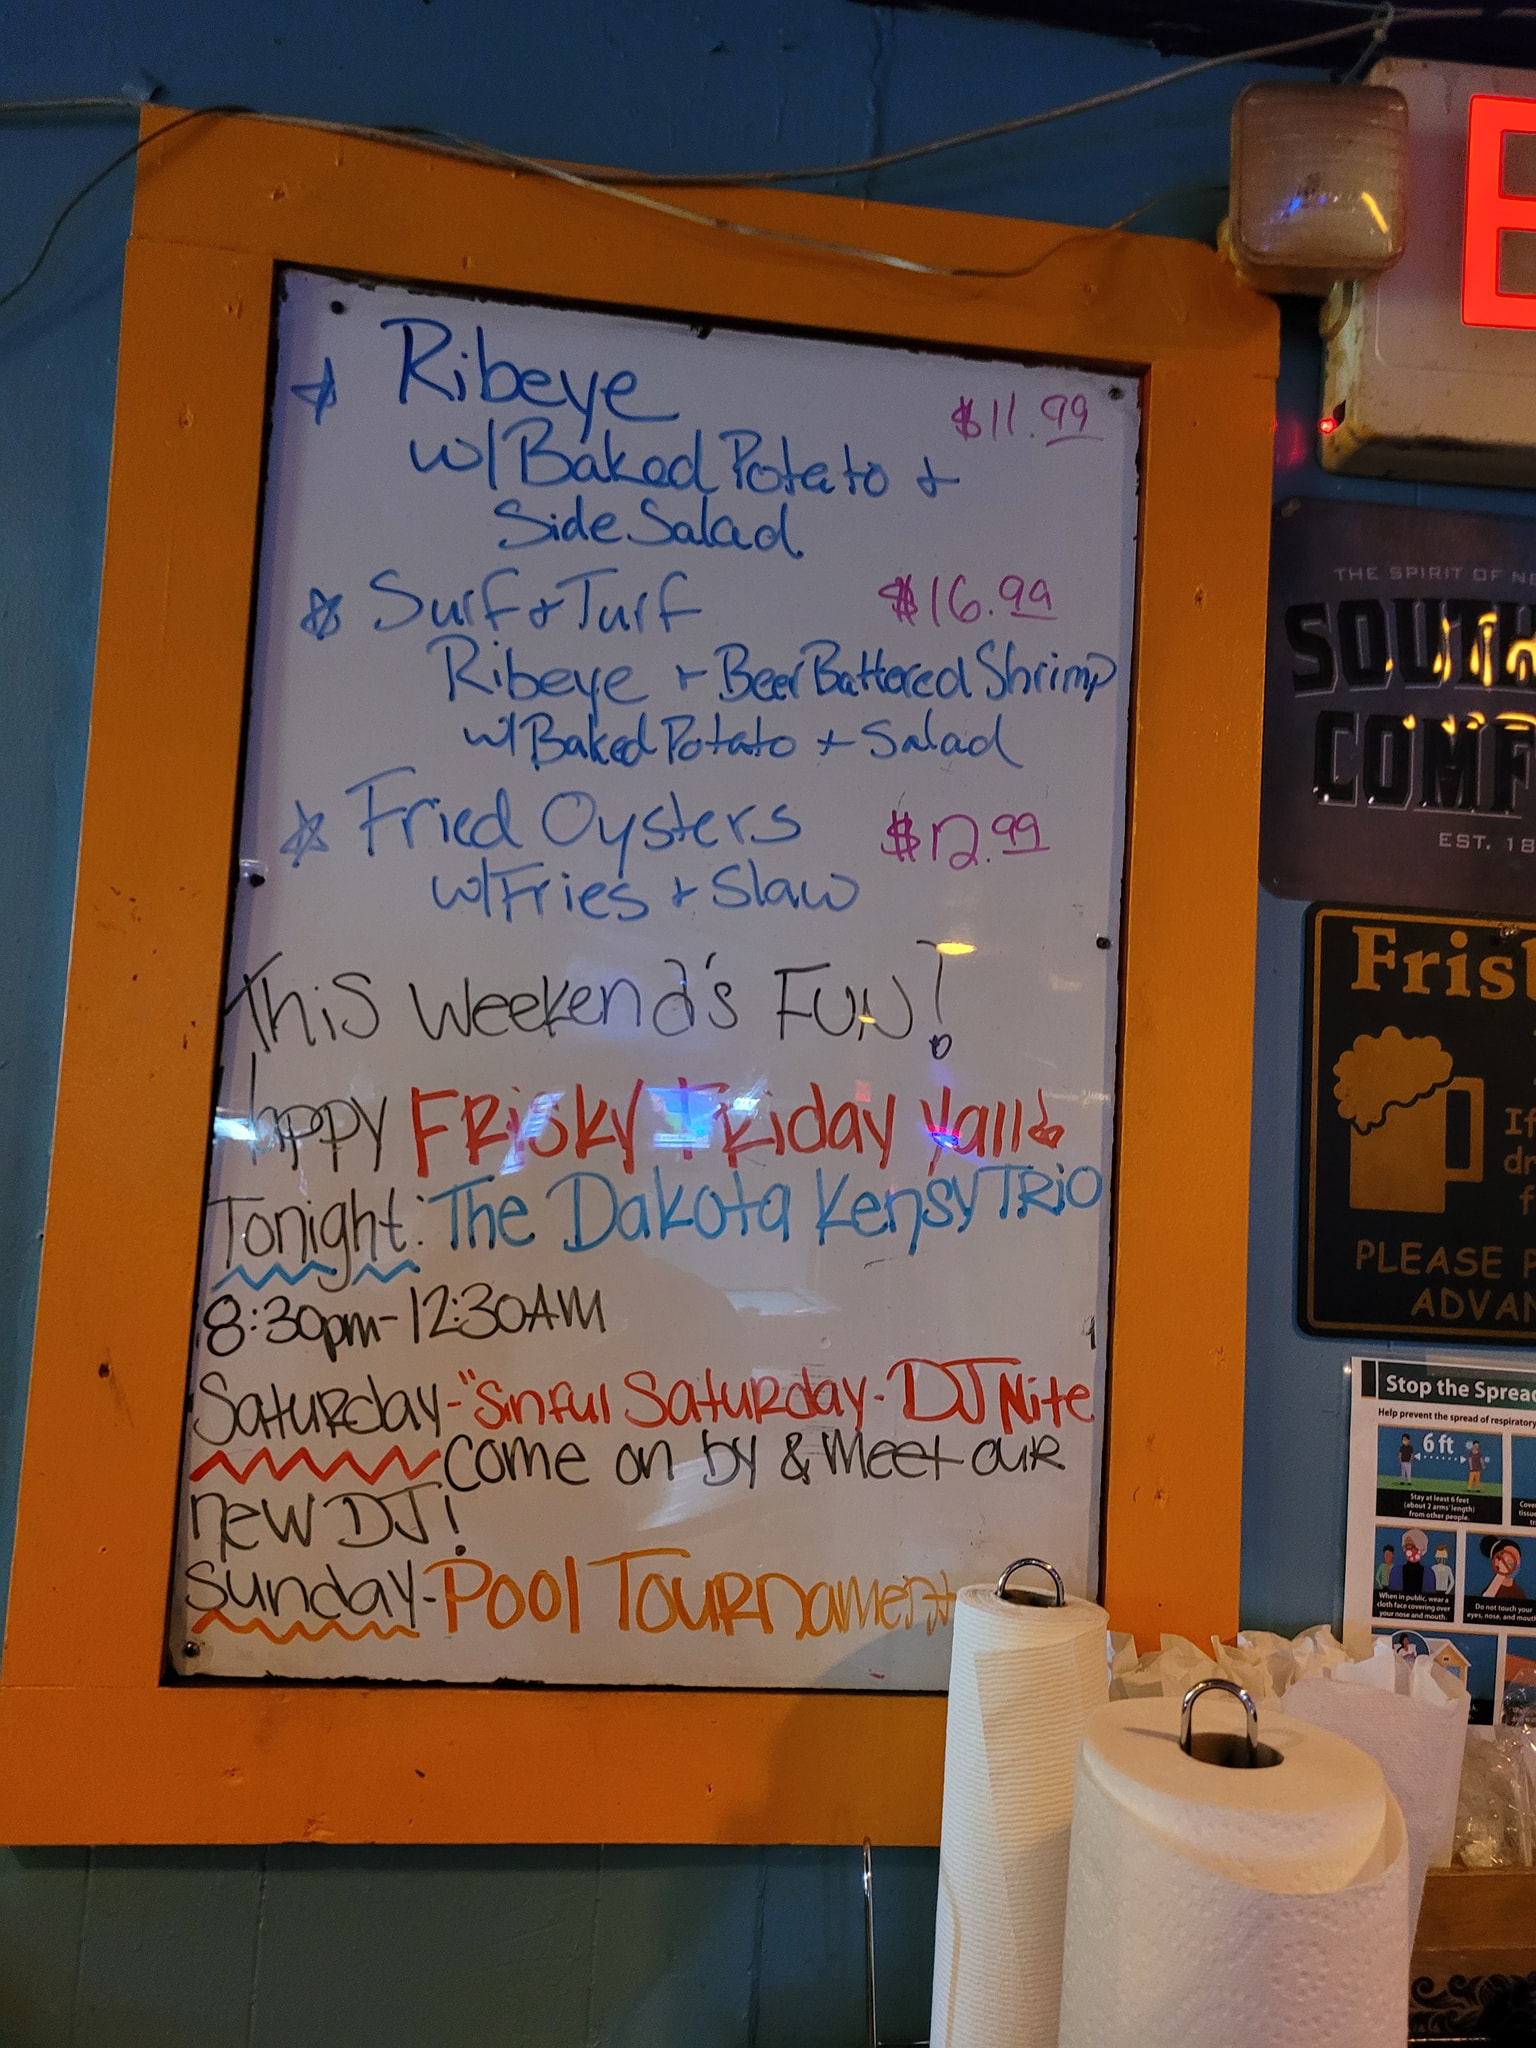 Ribeye $11.99
w/Baked Potato +
Side Salad
Surf + Turf $16.99
Ribeye + Beer Battered Shrimp
w/Baked Potato + Salad
Fried Oysters $12.99
w/Fries + Slaw
This Weekend's FUN!
Happy Frisky Friday Yall!
Tonight: The Dakota Kensy TRIO
8:30pm-12:30AM
Saturday-"Sinful Saturday-DJ Nite
come on by & meet our
new DJ!
Sunday-Pool Tournament
E
THE SPIRIT OF
SOUTH
COMF
EST. 18
Fris
If
PLEASE
ADVAN
Stop the Spread
Help prevent the spread of respiratory
6 ft
Stay at least 6 feet
(about 2 arms' length)
from other people.
When in public, wear a
cloth face covering over
your nose and mouth.
Do not touch your
eyes, nose, and